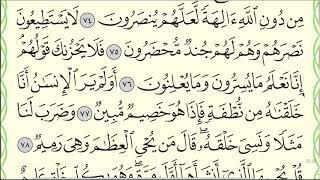 مِن دُونِ ٱللَّهِ ءَالِهَةً لَّعَلَّهُمْ يُنصَرُونَ ٧٤ لَا يَسْتَطِيعُونَ
نَصْرَهُمْ وَهُمْ لَهُمْ جُندٌ مُّحْضَرُونَ ٧٥ فَلَا يَحْزُنكَ قَوْلُهُمْ
إِنَّا نَعْلَمُ مَا يُسِرُّونَ وَمَا يُعْلِنُونَ ٧٦ أَوَلَمْ يَرَ ٱلْإِنسَٰنُ أَنَّا
خَلَقْنَٰهُ مِن نُّطْفَةٍ فَإِذَا هُوَ خَصِيمٌ مُّبِينٌ ٧٧ وَضَرَبَ لَنَا
مَثَلًا وَنَسِىَ خَلْقَهُۥ قَالَ مَن يُحْىِ ٱلْعِظَٰمَ وَهِىَ رَمِيمٌ ٧٨
قُلْ يُحْيِيهَا ٱلَّذِىٓ أَنشَأَهَآ أَوَّلَ مَرَّةٍ وَهُوَ بِكُلِّ خَلْقٍ عَلِيمٌ